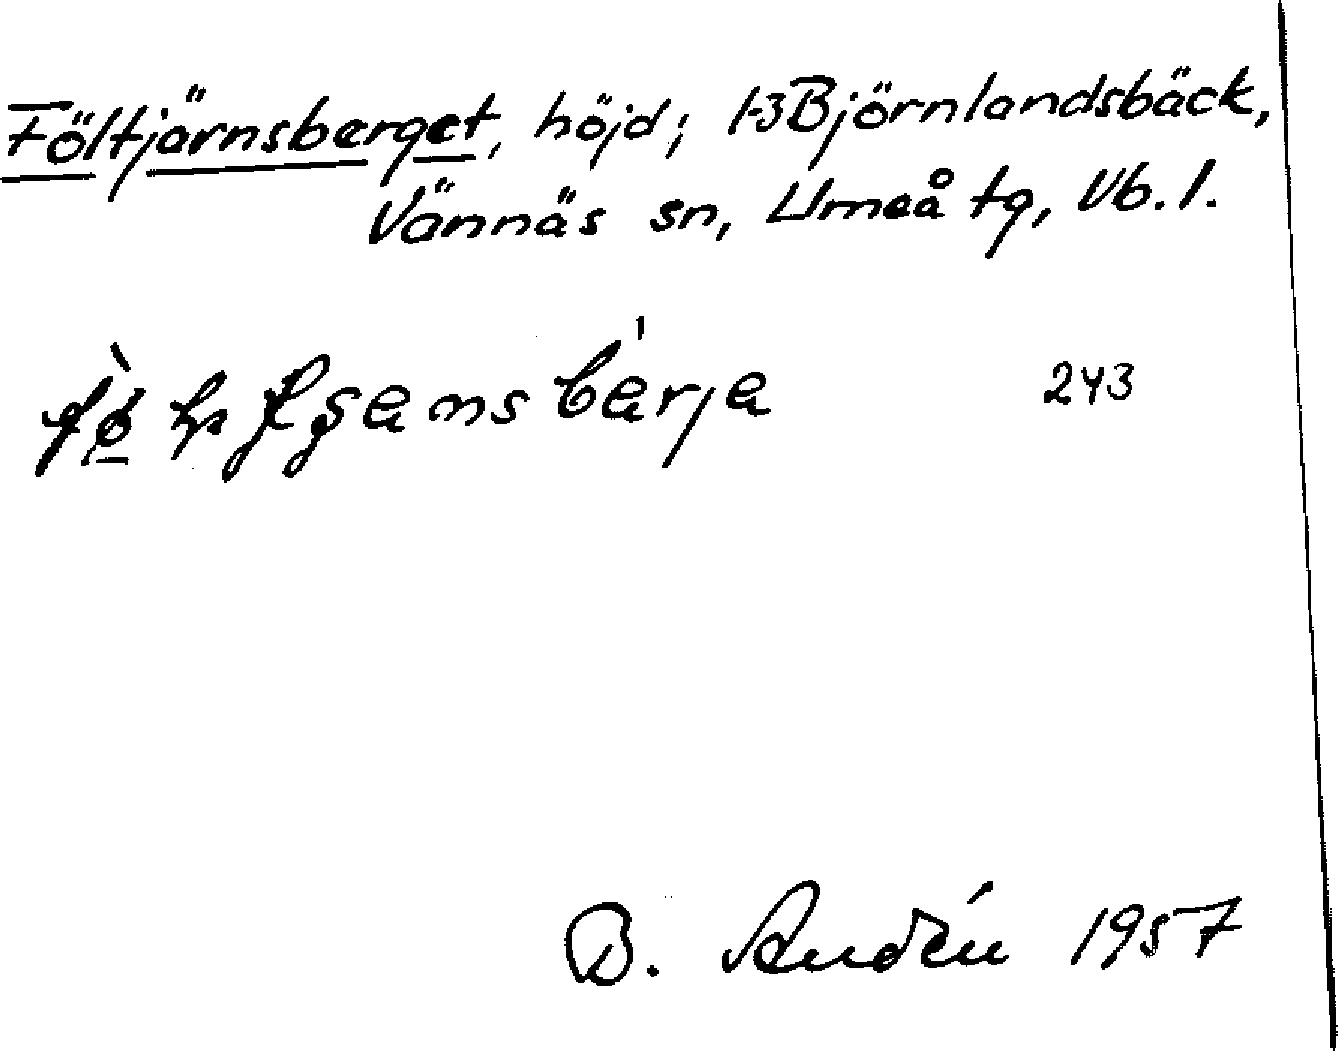 Följtjärnsberget, höjd; 1-3 Björnlandsbäck,
Vännäs sn, Umeå tg, Vb. l.
243
B. Andén 1957